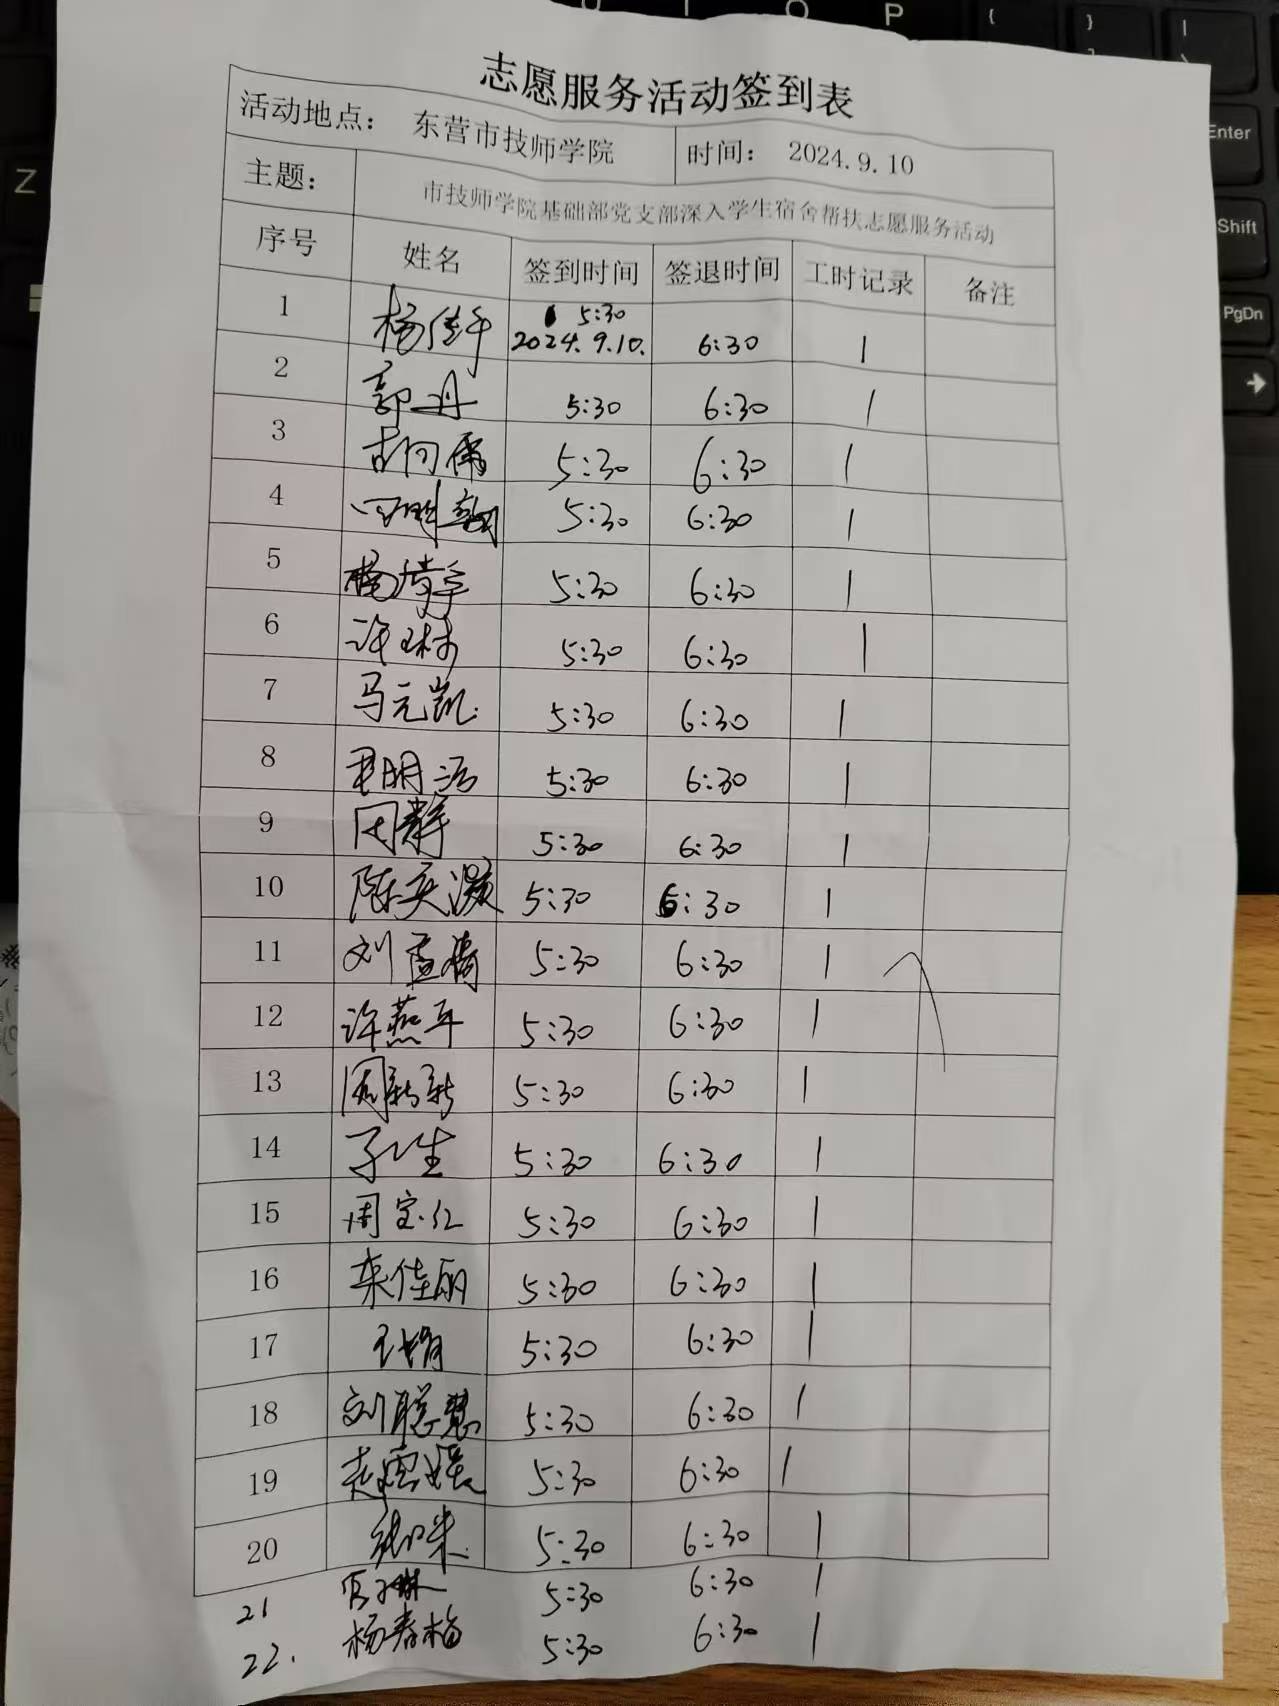 志愿服务活动签到表
活动地点： 东营市技师学院 时间： 2024.9.10
主题： 市技师学院基础部党支部深入学生宿舍帮扶志愿服务活动
序号 姓名 签到时间 签退时间 工时记录 备注
1 杨佳千 5:30 2024.9.10. 6:30 1
2 郭丹 5:30 6:30 1
3 5:30 6:30 1
4 5:30 6:30 1
5 杨婧宇 5:30 6:30 1
6 许琳 5:30 6:30 1
7 马元凯 5:30 6:30 1
8 5:30 6:30 1
9 周静 5:30 6:30 1
10 陈奕灏 5:30 6:30 1
11 刘孟倩 5:30 6:30 1
12 许燕平 5:30 6:30 1
13 周新新 5:30 6:30 1
14 5:30 6:30 1
15 周宝红 5:30 6:30 1
16 栾佳丽 5:30 6:30 1
17 王娟 5:30 6:30 1
18 刘聪慧 5:30 6:30 1
19 5:30 6:30 1
20 5:30 6:30 1
21 5:30 6:30 1
22. 杨春梅 5:30 6:30 1
Enter
Shift
PgDn
Z
O P